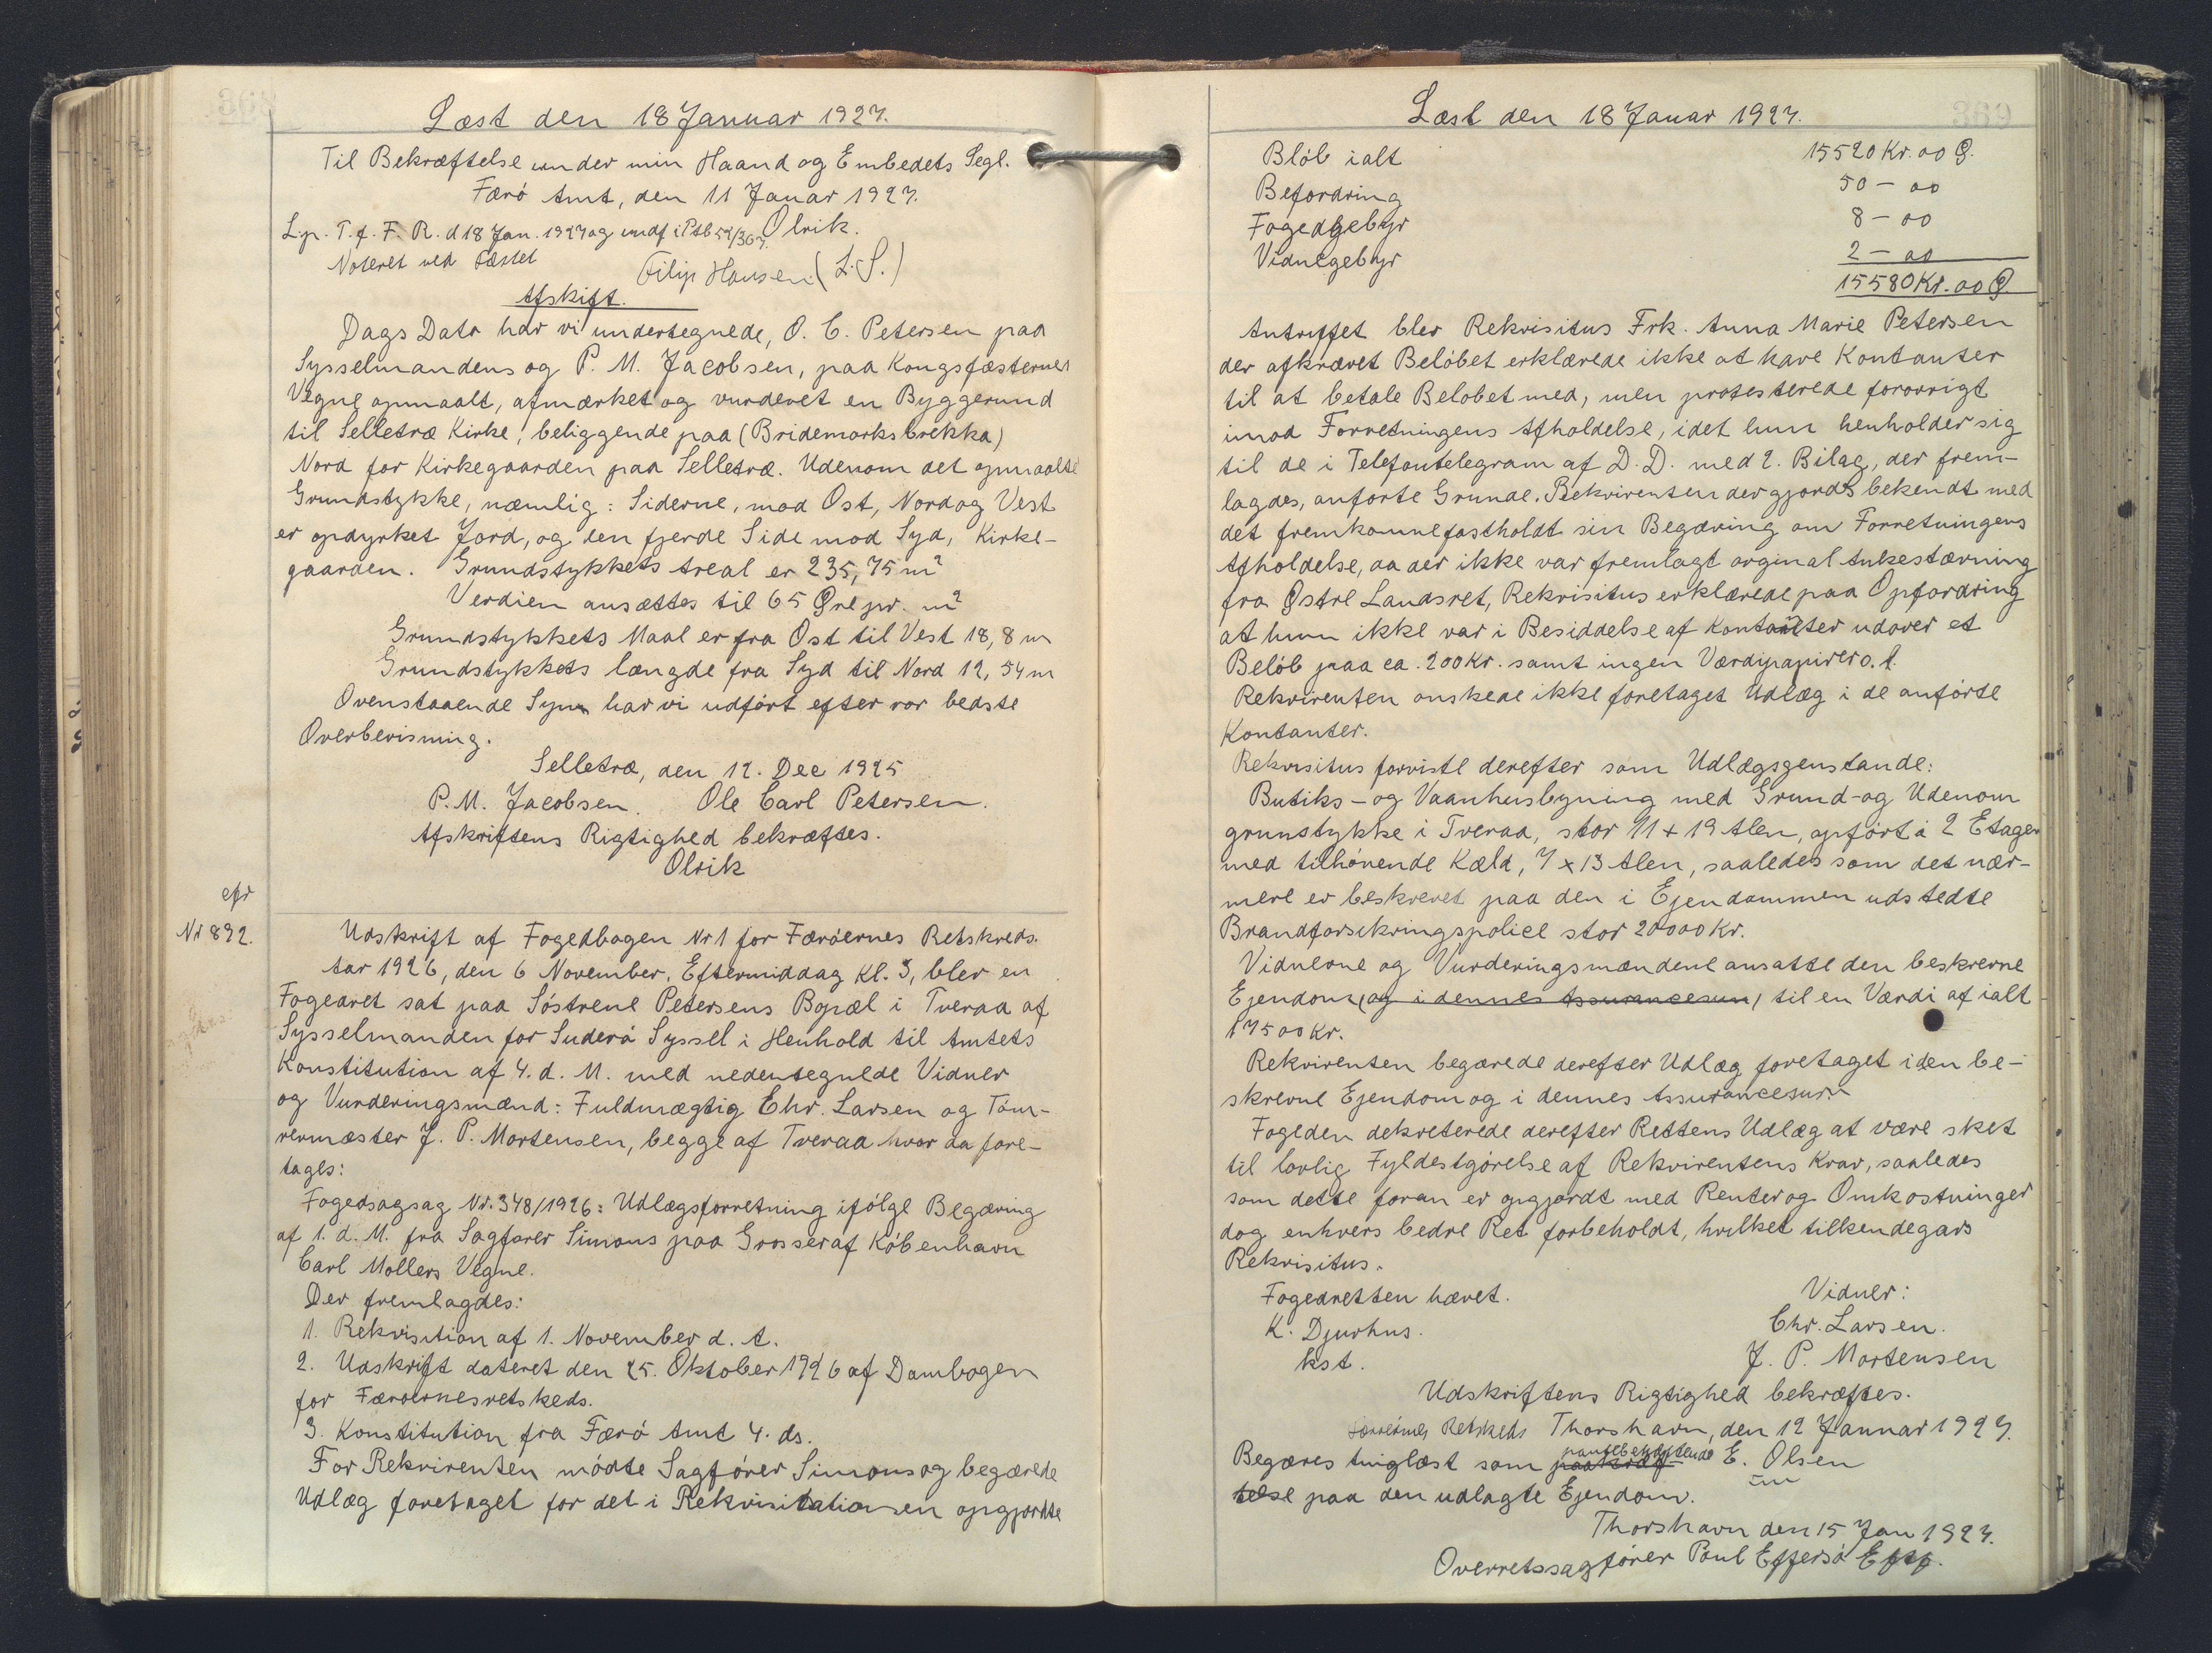 Læst den 18 Januar 1927.
Til Bekræftelse under min Haand og Embedets Segl.
Færö Amt, den 11 Januar 1927.
L.p. T. f. F. R. d 18 Jan. 1927 og indf i Ptb 52/367. Olrik.
Noteret ved Fæstet
Filip Hansen (L. S.)
Afskift.
Dags Dato har vi undertegnede, O. C. Petersen paa
Sysselmandens og P. M. Jacobsen, paa Kongsfæsternes
Vegne opmaalt, afmærket og vurderet en Byggerund
til Selletræ Kirke, beliggende paa (Bridemorksbrekka)
Nord for Kirkegaarden paa Selletræ. Udenom det opmaalte
Grundstykke, næmlig: Siderne, mod Ost, Nord og Vest
er opdyrket Jord, og den fjerde Side mod Syd, Kirke-
gaarden. Grundstykkets Areal er 235,75 m²
Verdien ansættes til 65 Øre pr. m²
Grundstykkets Maal er fra Ost til Vest 18,8 m
Grundstykkets længde fra Syd til Nord 12,54 m
Ovenstaaende Syn har vi udført efter vor bedste
Overbevisning.
Selletræ, den 12. Dec 1925
P. M. Jacobsen. Ole Carl Petersen.
Afskriftens Rigtighed bekræftes.
Olrik
efr
Nr 832.
Udskrift af Fogedbogen Nr 1 for Færöernes Retskreds.
Aar 1926, den 6 November, Eftermiddag Kl. 3, blev en
Fogedret sat paa Söstrene Petersens Bopæl i Tveraa af
Sysselmanden for Suderö Syssel i Henhold til Amtets
Konstitution af 4. d. M. med nedentegnede Vidner
og Vurderingsmænd: Fuldmægtig Chr. Larsen og Töm-
rermæster J. P. Mortensen, begge af Tveraa hvor da fore-
tages:
Fogedsagsag Nr. 348/1926: Udlægsforretning ifölge Begæring
af 1. d. M. fra Sagforer Simons paa Grosser af Köbenhavn
Carl Mollers Vegne.
Der fremlagdes:
1. Rekvisition af 1. November d. A.
2. Udskrift dateret den 25. Oktober 1926 af Dombogen
for Færoernesretskeds.
3. Konstitution fra Færö Amt 4. ds.
For Rekvirenten mödte Sagförer Simons og begærede
Udlæg foretaget for det i Rekvisitationsen opgjordte
Læst den 18 Januar 1927.
Blöb ialt 15520 Kr. 00 Ø.
Befordring 50 – 00
Fogedgebyr 8 – 00
Vidnegebyr 2 – 00
15580 Kr. 00 Ø.
Antruffet blev Rekvisitus Frk. Anna Marie Petersen
der afkrævet Belöbet erklærede ikke at have Kontanter
til at betale Belobet med, men protesterede forovrigt
imod Forretningens Afholdelse, idet hun henholder sig
til de i Telefontelegram af D. D. med 2. Bilag, der frem-
lagdes, anforte Grunde. Rekvirenten der gjordes bekendt med
det fremkomne fastholdt sin Begæring om Forretningens
Afholdelse, da der ikke var fremlagt orginal Ankestævning
fra Østre Landsret, Rekvisitus erklærede paa Opfordring
at hun ikke var i Besiddelse af Kontanter udover et
Belöb paa ca. 200 Kr. samt ingen Værdipapirer o. l.
Rekvirenten onskede ikke foretaget Udlæg i de anförte
Kontanter.
Rekvisitus forviste derefter som Udlægsgenstande:
Butiks- og Vaanhusbygning med Grund- og Udenom
grunstykke i Tveraa, stor 11 + 19 Alen, opfört á 2 Etager
med tilhörende Kæld, 7 x 13 Alen, saaledes som det nær-
mere er beskrevet paa den i Ejendommen udstedte
Brandforsikringspolice stor 20000 Kr.
Vidnerne og Vurderingsmændene ansatte den beskrevne
Ejendom (og i dennes Assurancesum) til en Værdi af ialt
17500 Kr.
Rekvirenten begærede derefter Udlæg foretaget i den be-
skrevne Ejendom og i dennes Assurancesum
Fogeden dekreterede derefter Rettens Udlæg at være sket
til lovlig Fyldestgörelse af Rekvirentens Krav, saaledes
som dette foran er opgjordt med Renter og Omkostninger
dog enhvers bedre Ret forbeholdt, hvilket tilkendegavs
Rekvisitus.
Fogedretten hævet. Vidner:
K. Djurhus. Chr. Larsen.
kst. J. P. Mortensen
Udskriftens Rigtighed bekræftes.
Færoernes Retskeds Thorshavn, den 12 Januar 1927.
Begæres tinglæst som pantebehæftende E. Olsen
telse paa den udlagte Ejendom.
Thorshavn den 15 Jan 1927.
Overretssagförer Poul Effersö Eftf.